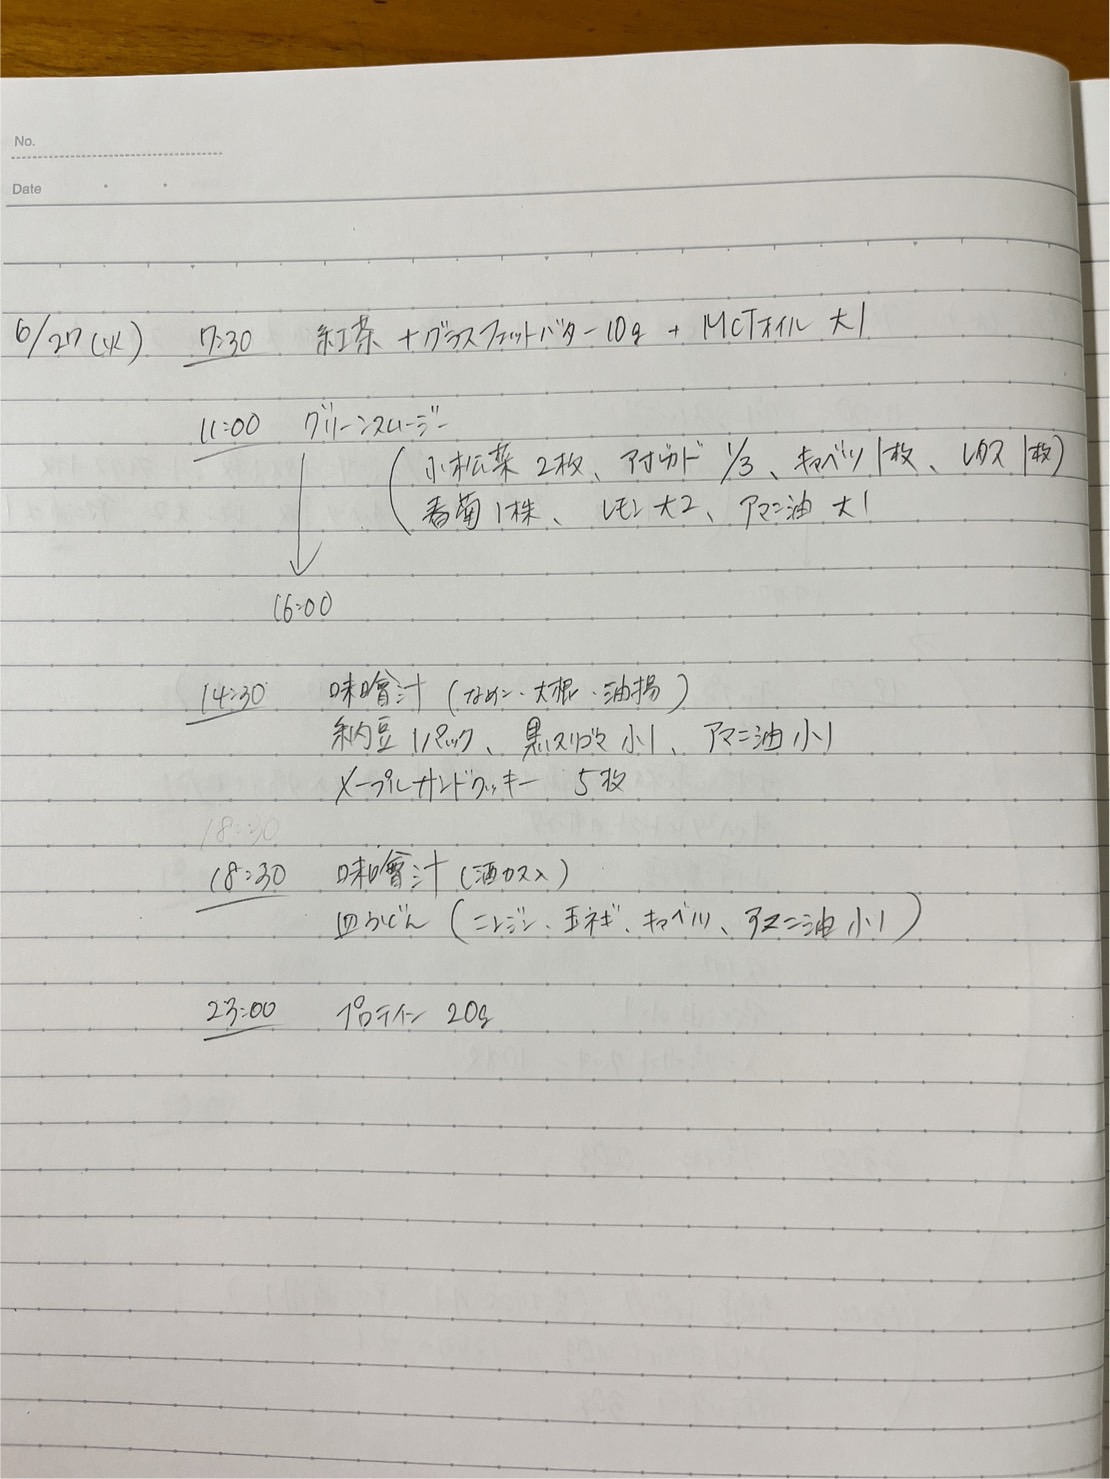 No.
Date
6/27(火) 7:30 紅茶 +グラスフェットバター10g + MCTオイル 大1
11:00 グリーンスムージー
(小松菜 2枚、アボカド 1/3、キャベツ 1枚、レタス 1枚)
春菊 1株、レモン大2、アマニ油 大1
16:00
14:30 味噌汁 (なめこ・大根・油揚)
納豆 1パック、黒スリゴマ 小1、アマニ油 小1
メープルサンドクッキー 5枚
18:30
18:30 味噌汁 (酒カス入)
皿うどん (ニンジン、玉ネギ、キャベツ、アマニ油 小1)
23:00 プロテイン 20g